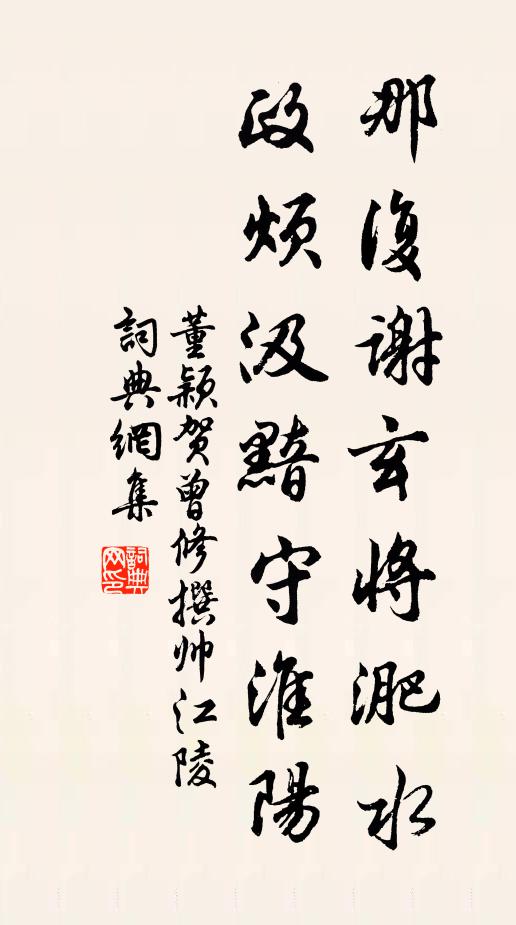 那復謝玄將淝水
政煩汲黯守淮陽
董颖贺曾修撰帅江陵
詞典網集
詞典網印